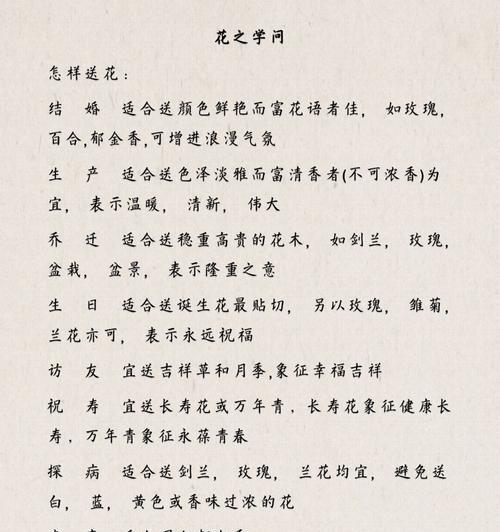 花之学问
怎样送花：
结 婚 适合送颜色鲜艳而富花语者佳， 如玫瑰，
百合,郁金香,可增进浪漫气氛
生 产 适合送色泽淡雅而富清香者(不可浓香)为
宜， 表示温暖， 清新， 伟大
乔 迁 适合送稳重高贵的花木， 如剑兰， 玫瑰，
盆栽， 盆景， 表示隆重之意
生 日 适合送诞生花最贴切， 另以玫瑰， 雏菊，
兰花亦可， 表示永远祝福
访 友 宜送吉祥草和月季,象征幸福吉祥
祝 寿 宜送长寿花或万年青，长寿花象征健康长
寿，万年青象征永葆青春
探 病 适合送剑兰， 玫瑰， 兰花均宜， 避免送
白， 蓝， 黄色或香味过浓的花